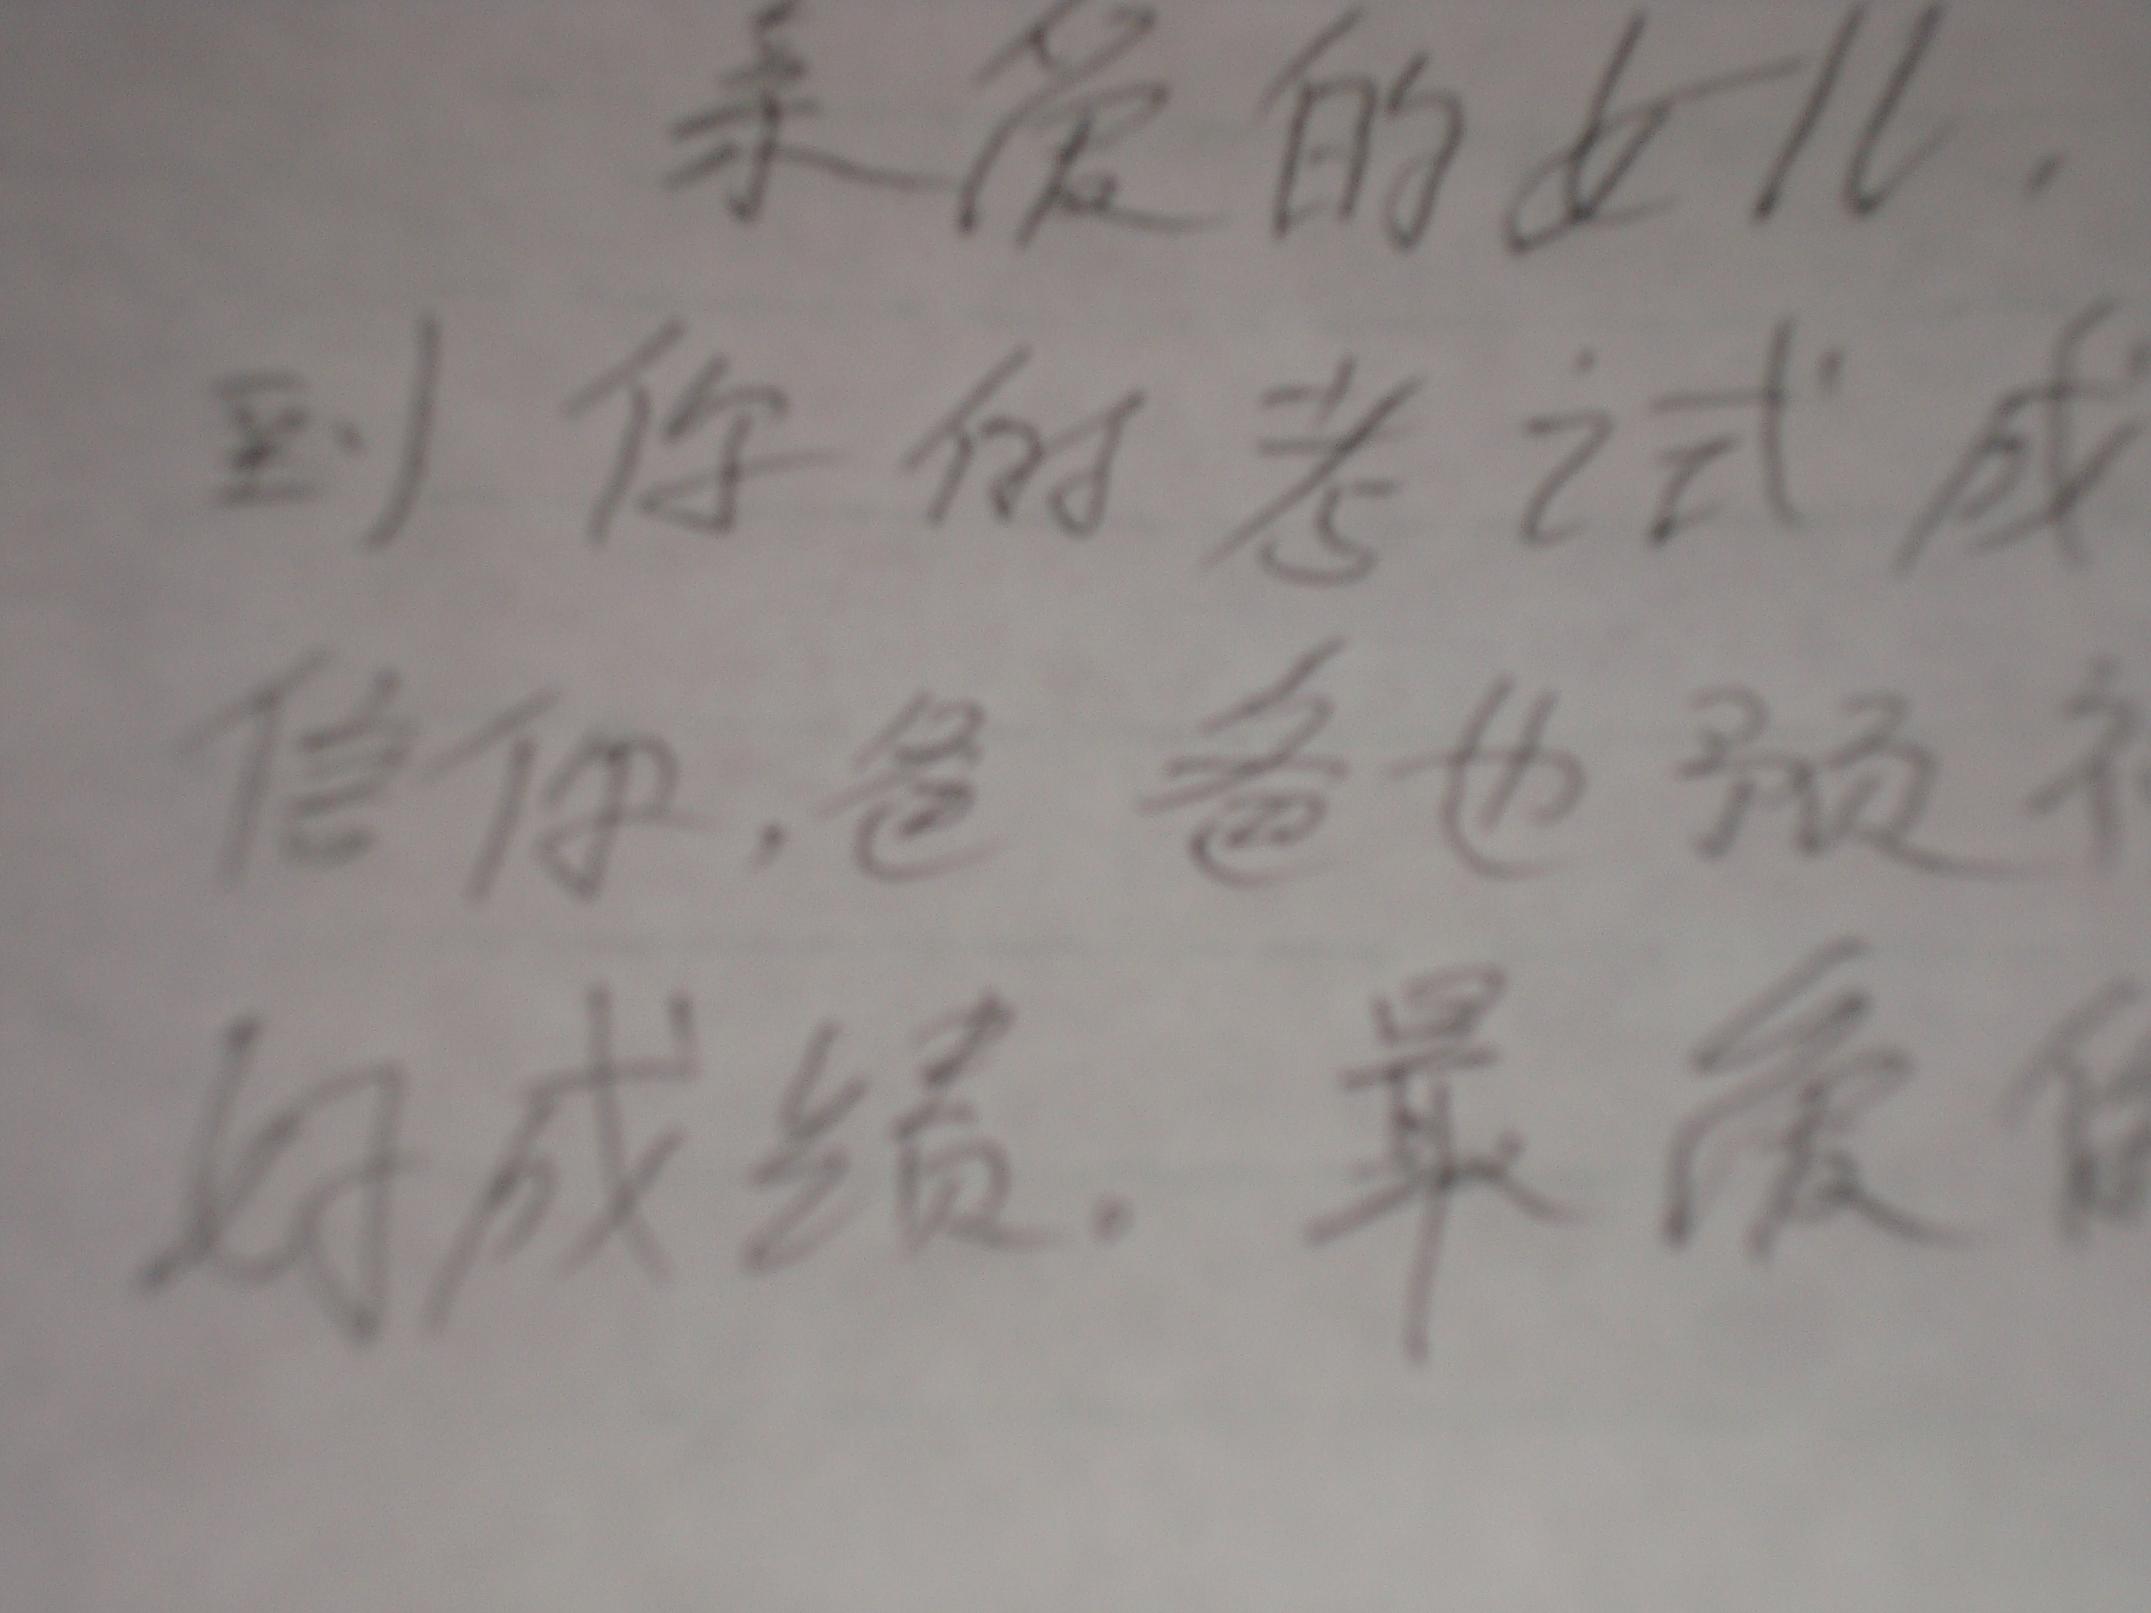 亲爱的女儿.
到你的考试成
信你.爸爸也预祝
好成绩.最后